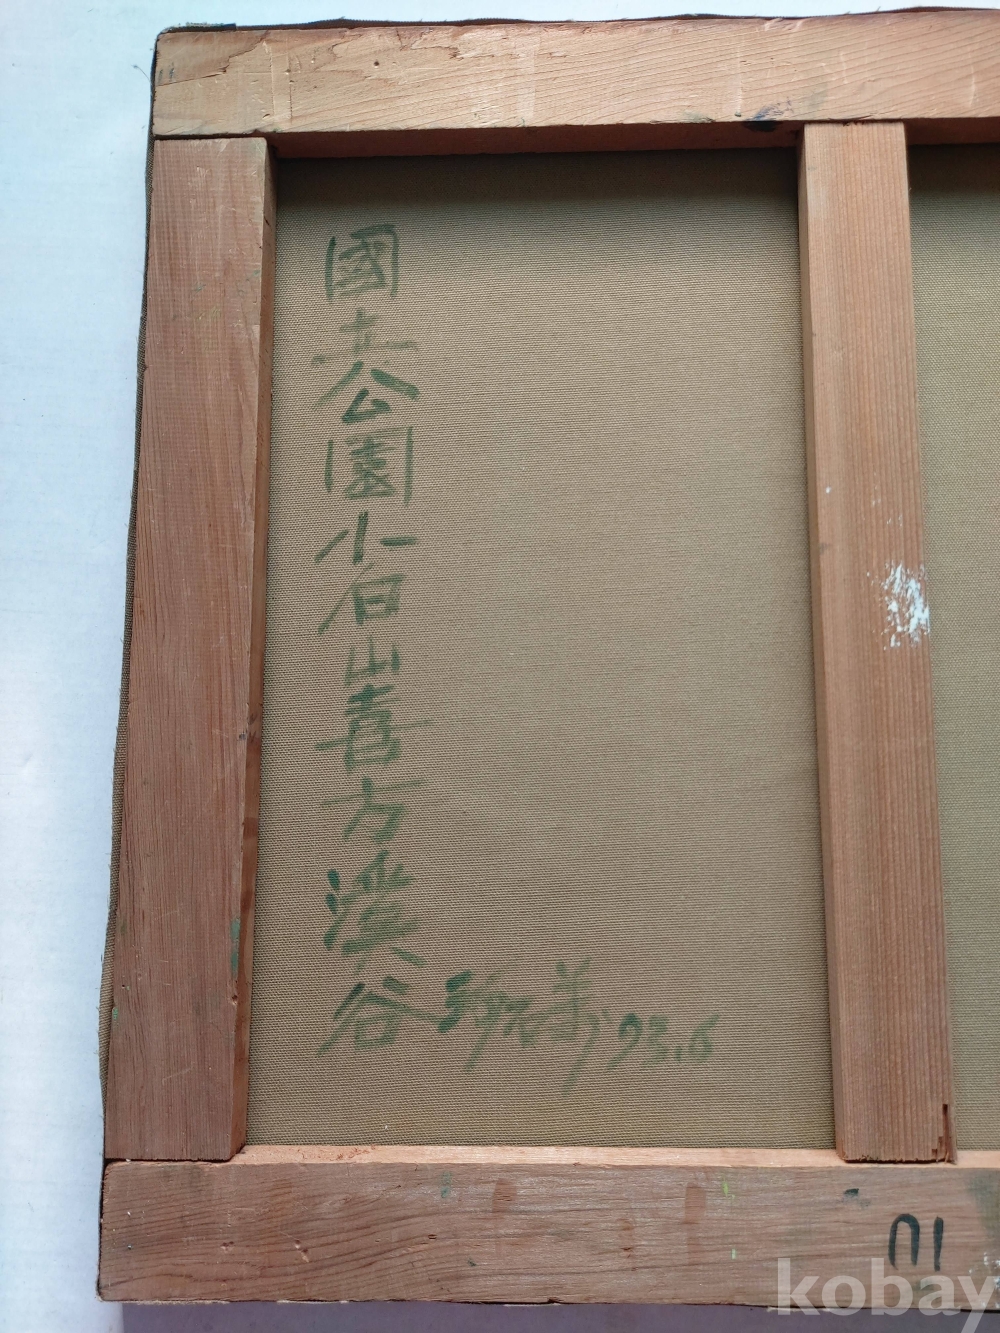 國立公園小白山喜方溪谷
93.6
kobay